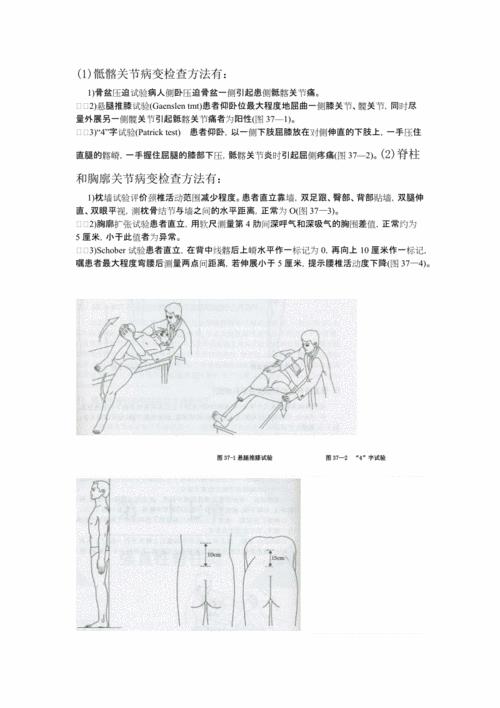 (1)骶髂关节病变检查方法有：
1)骨盆压迫试验病人侧卧压迫骨盆一侧引起患侧骶髂关节痛。
□□2)悬腿推膝试验(Gaenslen tmt)患者仰卧位最大程度地屈曲一侧膝关节、髋关节，同时尽
量外展另一侧髋关节引起骶髂关节痛者为阳性(图 37—1)。
□□3)“4”字试验(Patrick test)　患者仰卧，以一侧下肢屈膝放在对侧伸直的下肢上，一手压住
直腿的髂嵴，一手握住屈腿的膝部下压，骶髂关节炎时引起屈侧疼痛(图 37—2)。(2)脊柱
和胸廓关节病变检查方法有：
1)枕墙试验评价颈椎活动范围减少程度。患者直立靠墙，双足跟、臀部、背部贴墙，双腿伸
直、双眼平视，测枕骨结节与墙之间的水平距离，正常为 O(图 37—3)。
□□2)胸廓扩张试验患者直立，用软尺测量第 4 肋间深呼气和深吸气的胸围差值，正常约为
5 厘米，小于此值者为异常。
□□3)Schober 试验患者直立，在背中线髂后上嵴水平作一标记为 0，再向上 10 厘米作一标记，
嘱患者最大程度弯腰后测量两点间距离，若伸展小于 5 厘米，提示腰椎活动度下降(图 37—4)。
图 37-1 悬腿推膝试验　　图 37—2　“4”字试验
10cm
15cm